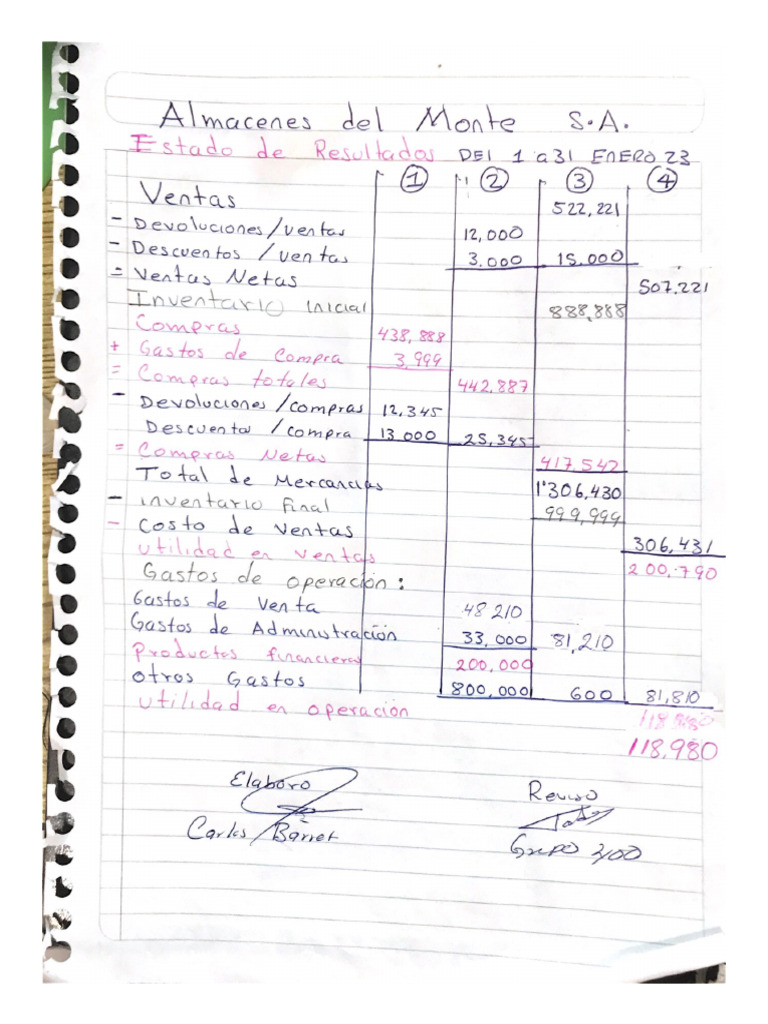 Almacenes del Monte S.A.
Estado de Resultados DEl 1 a 31 ENERO 23
1 2 3 4
Ventas 522,221
- Devoluciones/ventas 12,000
- Descuentos /ventas 3.000 15.000
= Ventas Netas 507.221
Inventario inicial 888,888
Compras 438,888
+ Gastos de Compra 3,999
= Compras totales 442,887
- Devoluciones/compras 12,345
Descuenta /compra 13.000 25,345
= Compras Netas 417.542
Total de Mercancias 1'306,430
- inventario final 999,999
- Costo de Ventas 306,431
utilidad en ventas 200,790
Gastos de operación:
Gastos de Venta 48210
Gastos de Administración 33,000 81,210
Productos financieros 200,000
otros Gastos 800,000 600 81,810
utilidad en operación 118,980
118,980
Elaboro
Carlos Barret
Reviso
Grupo 400